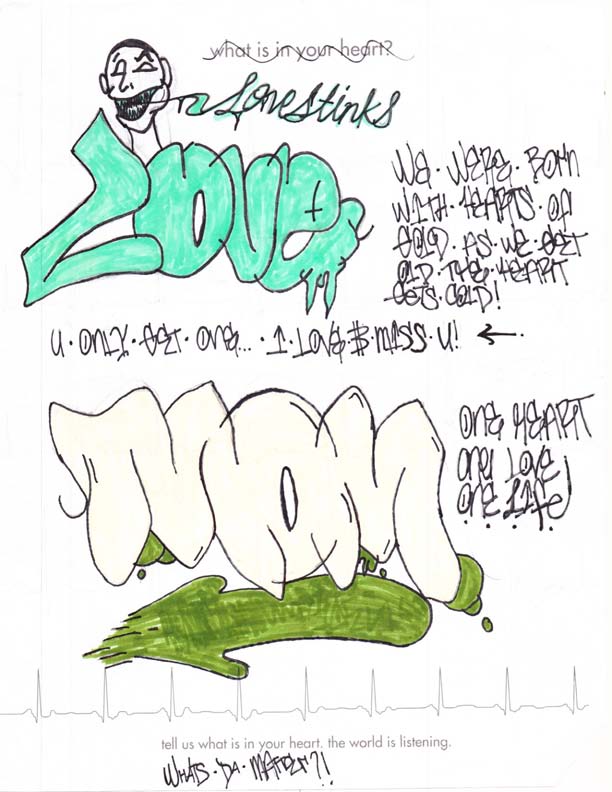 what is in your heart?
Love Stinks
Love
WE. WERE. BORN
WITH. HEARTS. OF
GOLD. AS. WE. GET
OLD. THE. HEART
GETS. COLD!
U. ONLY. GET. ONE... . I. LOVE $ MISS. U! ←.
MOM
ONE HEART
ONE LOVE
ONE LIFE
tell us what is in your heart. the world is listening.
WHATS. DA. MATTER?!